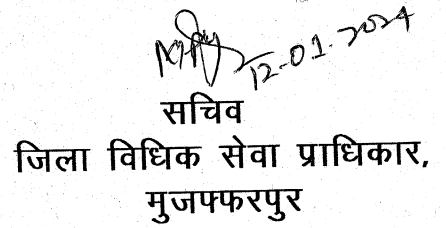 12-01-2024
सचिव
जिला विधिक सेवा प्राधिकार,
मुजफ्फरपुर